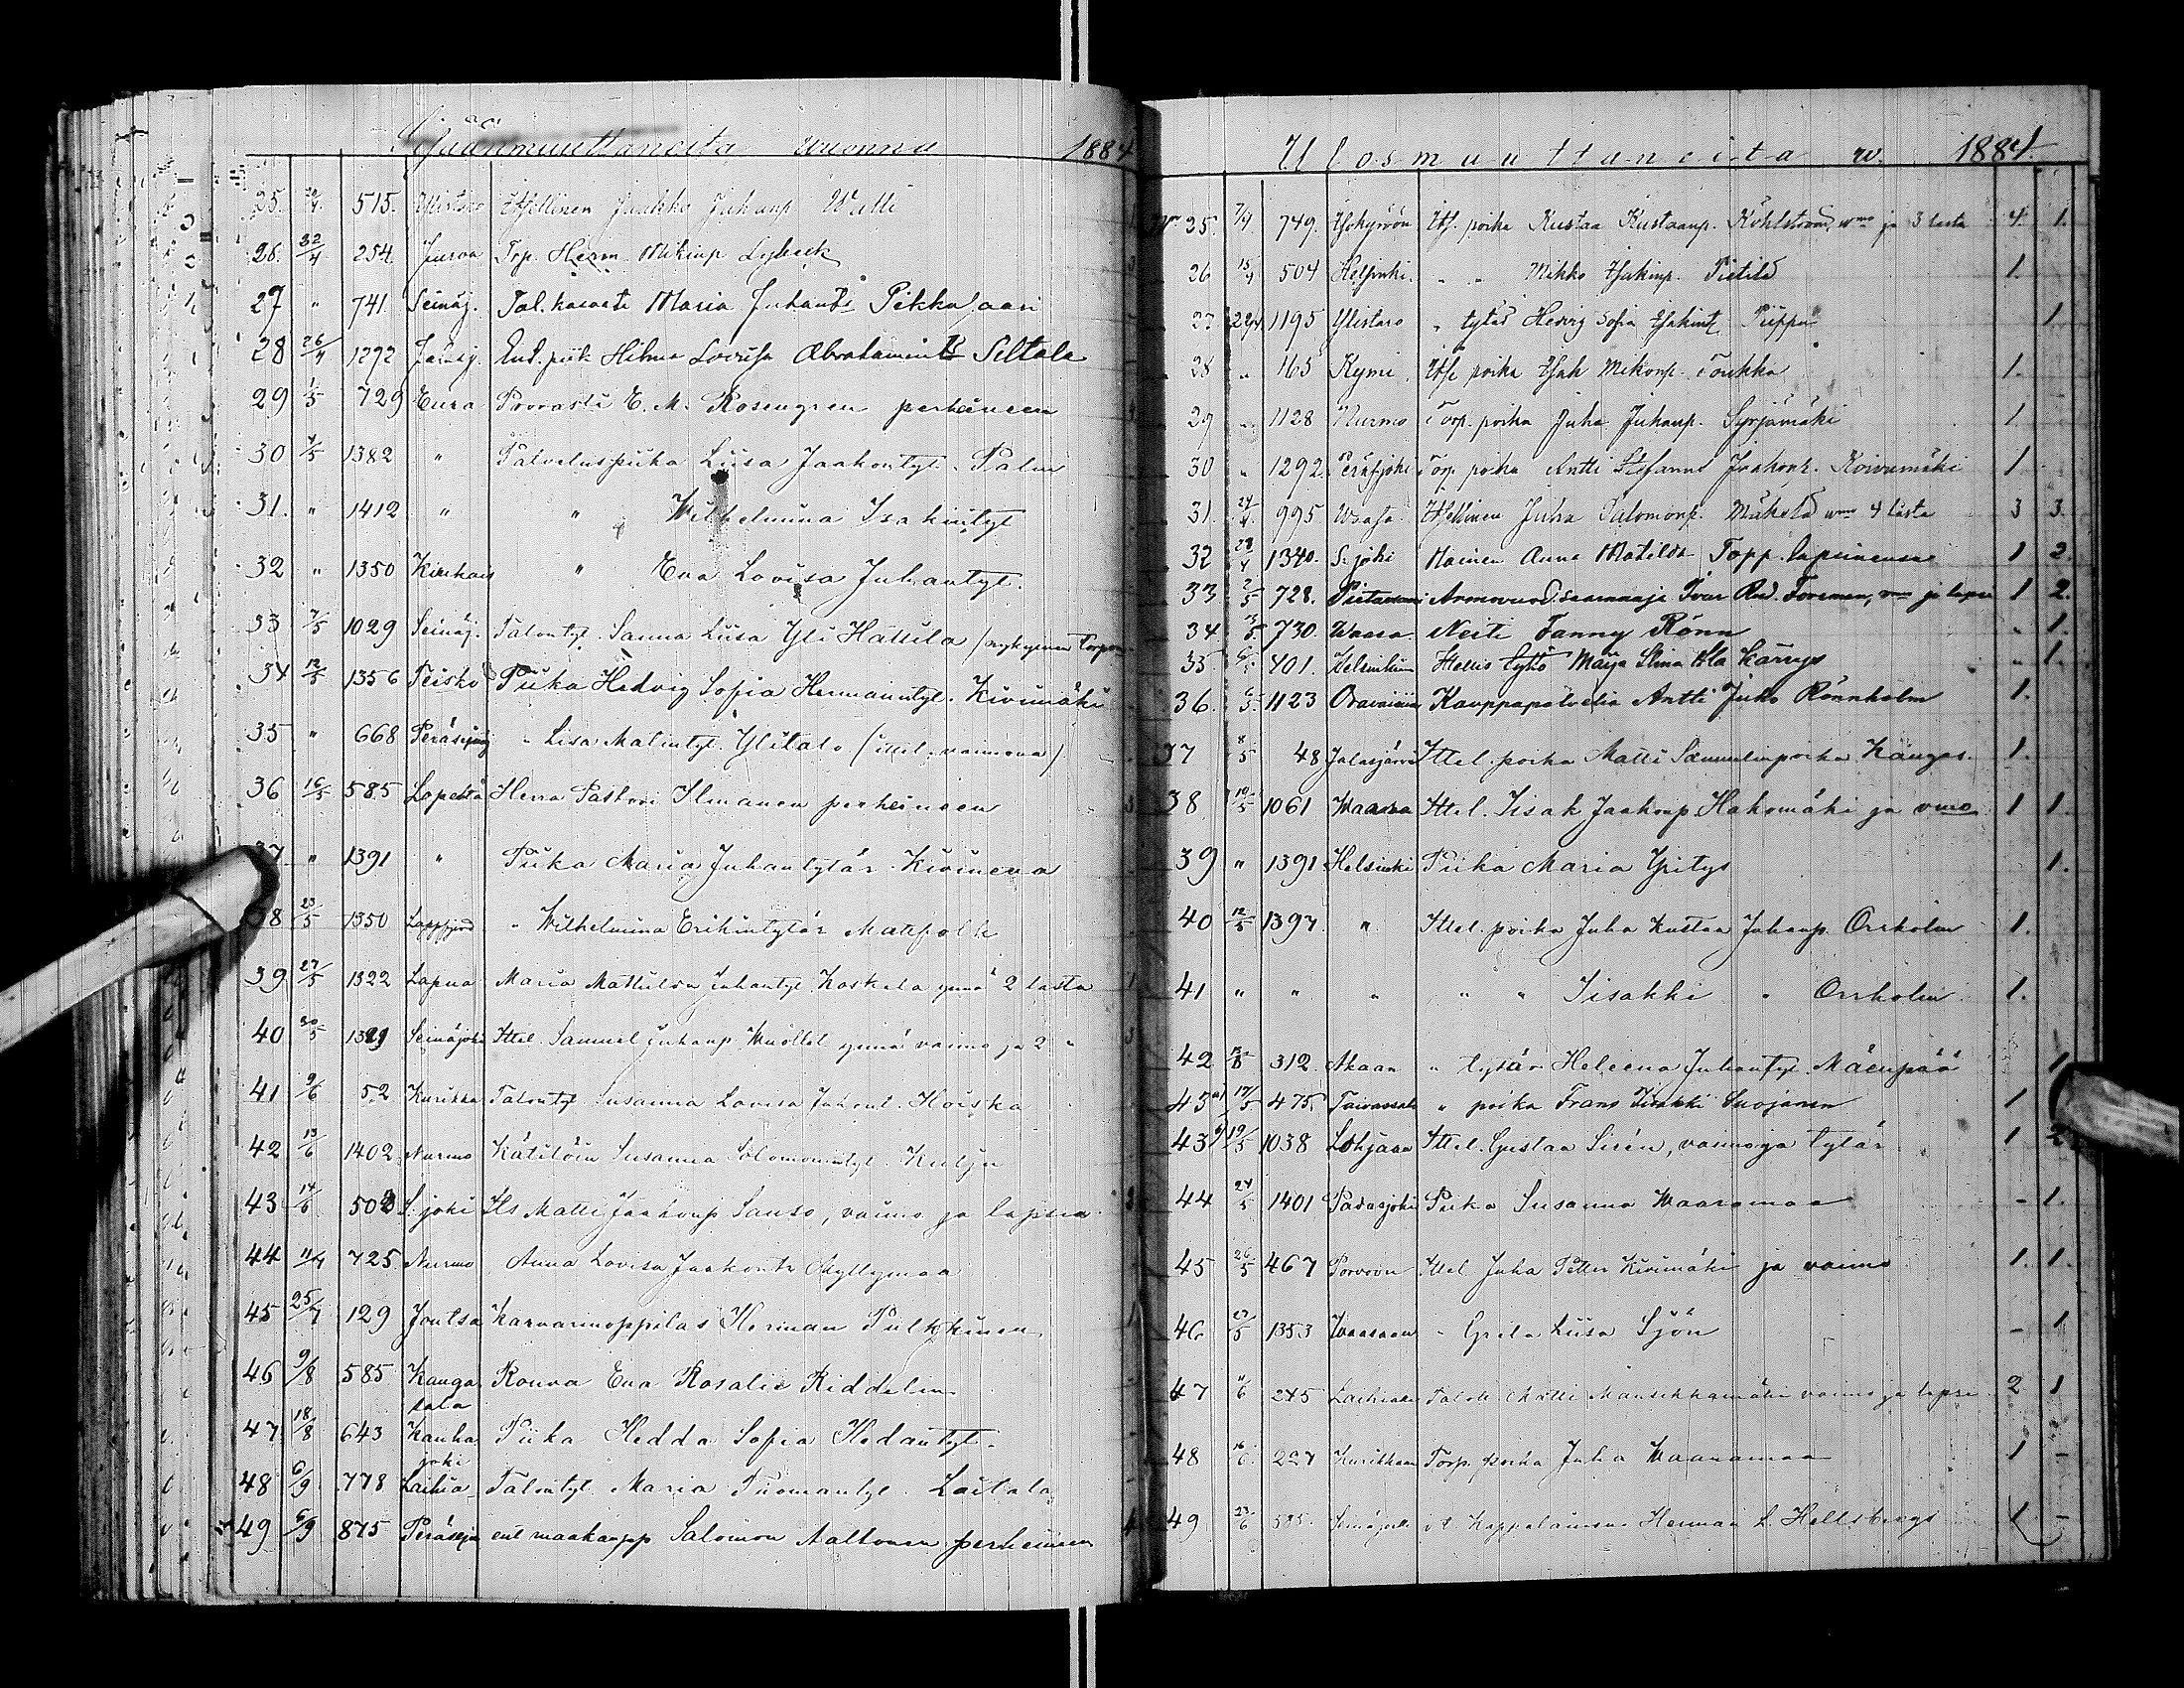 Sisäänmuuttaneita vuonna 1884
25. 20/4. 515. Ylistaro Itsellinen Jaakko Juhanp Watti
26. 22/4 254. Jurva Torp. Herm. Mikinp Lybeck
27 " 741. Seinäj. Tal. kasvatti Maria Juhant. Pikkusaari
28 26/4 1292 Jalasj. Ent. piik Hilma Lovisa Abrahamint. Siltala
29 1/5 729 Eura Provasti E. M. Rosengren perheineen
30 4/5 1382 " Palveluspiika Liisa Jaakontyt. Palm
31. " 1412 " " Wilhelmina Isakintyt
32 " 1350 Kauhava " Eva Lovisa Juhantyt.
33 7/5 1029 Seinäj. Talontyt. Sanna Liisa Yli Hallila (nykyinen Torpan
34 12/5 1356 Teisko Piika Hedvig Sofia Hermanintyt. Kivimäki
35 " 668 Peräseinäj " Lisa Matintyt. Ylitalo (ittel. vaimona)
36 16/5 585 Lapelta Herra Pastori Ilmanen perheineen
37. " 1391 " Piika Maria Juhantytär Kivinena
38 23/5 1350 Lappfjerd " Wilhelmina Erikintytär Matfolk
39 27/5 1322 Lapua Maria Mathilda Juhantyt. Koskela ynnä 2 lasta 1
40 30/5 1321 Seinäjoki Ittel. Samuel Juhanp Wuollet ynnä vaimo ja 2 " 3
41 9/6 52 Kurikka Talontyt Susanna Lovisa Juhant. Hoiska
42 13/6 1402 Nurmo Kätilöin Susanna Salomonintyt. Kulju
43 14/6 503 S.joki Its Matti Jaakonp Sauso, vaimo ja lapsia
44 11/7 725. Nurmo Anna Lovisa Jaakontr Myllymaa
45 25/7 129 Joutsa Karvarinoppilas Herman Pulkkinen 1
46 9/8 585 Kangasala Rouva Eva Rosalie Riddelin
47 18/8 643 Kauhajoki Piika Hedda Sofia Hedantyt.
48 6/9 778 Laihia Talontyt. Maria Tuomantyt. Laitala
49 6/9 875 Peräsejn ent maakaupp Salomon Aaltonen perheineen 4
Ulosmuuttaneita w. 1884.
25. 7/4 749. Isokyröön Its. poika Kustaa Kustaanp. Kohlström, wmo ja 3 lasta 4. 1.
26 15/4 504 Helsinki. " " Mikko Isakinp. Pietilä 1.
27 22/4 1195 Ylistaro " tytär Hedvig Sofia Isakint. Piippu 1
28 " 165 Kymi. Itse poika Isak Mikonp. Toukka 1.
29 " 1128 Nurmo Torp. poika Juha Juhanp. Syrjämäki 1.
30 " 1292. Peräsjoki Torp. poika Antti Stefanus Jaakonp. Koivumäki 1
31. 24/4. 995 Waasa. Itsellinen Juha Salomonp. Mäkelä wmo 4 lasta 3 3.
32 28/4 1340. S.joki Nainen Anna Matilda Topp. lapsinensa 1 2.
33 2/5 728. Pietarsaari Armovuod. saarnaaja Ivar Rud. Forsman, vmo ja lapsi 1 2.
34 3/5. 730. Waasa. Neiti Fanny Rönn " 1.
35 6/5 401. Helsinkiin Itellis tyttö Maija Stina Ala Karrys " 1.
36. 6/5. 1123 Oravaisiin Kauppapalvelia Antti Juho Rönnholm 1.
37 8/5 48 Jalasjärvi Ittel. poika Matti Sameulinpoika Kangas. 1.
38 10/5 1061 Waasa Ittel. Iisak Jaakonp. Hakomäki ja vmo 1 1.
39 " 1391 Helsinki Piika Maria Yritys 1.
40 12/5 1397. " Ittel. poika Juha Kustaa Juhanp. Orrholm 1.
41 " " " " " Iisakki " Orrholm 1.
42 15/5 312. Akaan " tytär Heleena Juhantyt. Mäenpää 1
43 a) 17/5 475. Taivassalo " poika Frans Iisakki Suojanen 1
43 b) 19/5 1038 Lohjaan Ittel. Gustaa Sirén, vaimo ja tytär 1 2
44 24/5 1401 Padasjoki Piika Susanna Waaramaa - 1.
45 26/5 467 Porvoon Ittel Juha Petter Kivimäki ja vaimo 1. 1.
46 27/5 1353 Waasaan " Greta Liisa Sjön - 1
47 11/6 245 Laihiaan Taloll Matti Mansikkamäki vaimo ja lapsi 2 1
48 16/6 227 Kurikkaan Torp. poika Juha Waaramaa 1 -
49 23/6 585. Seinäjoelle v.t. Kappalainen Herman L. Hellsberg 1 -